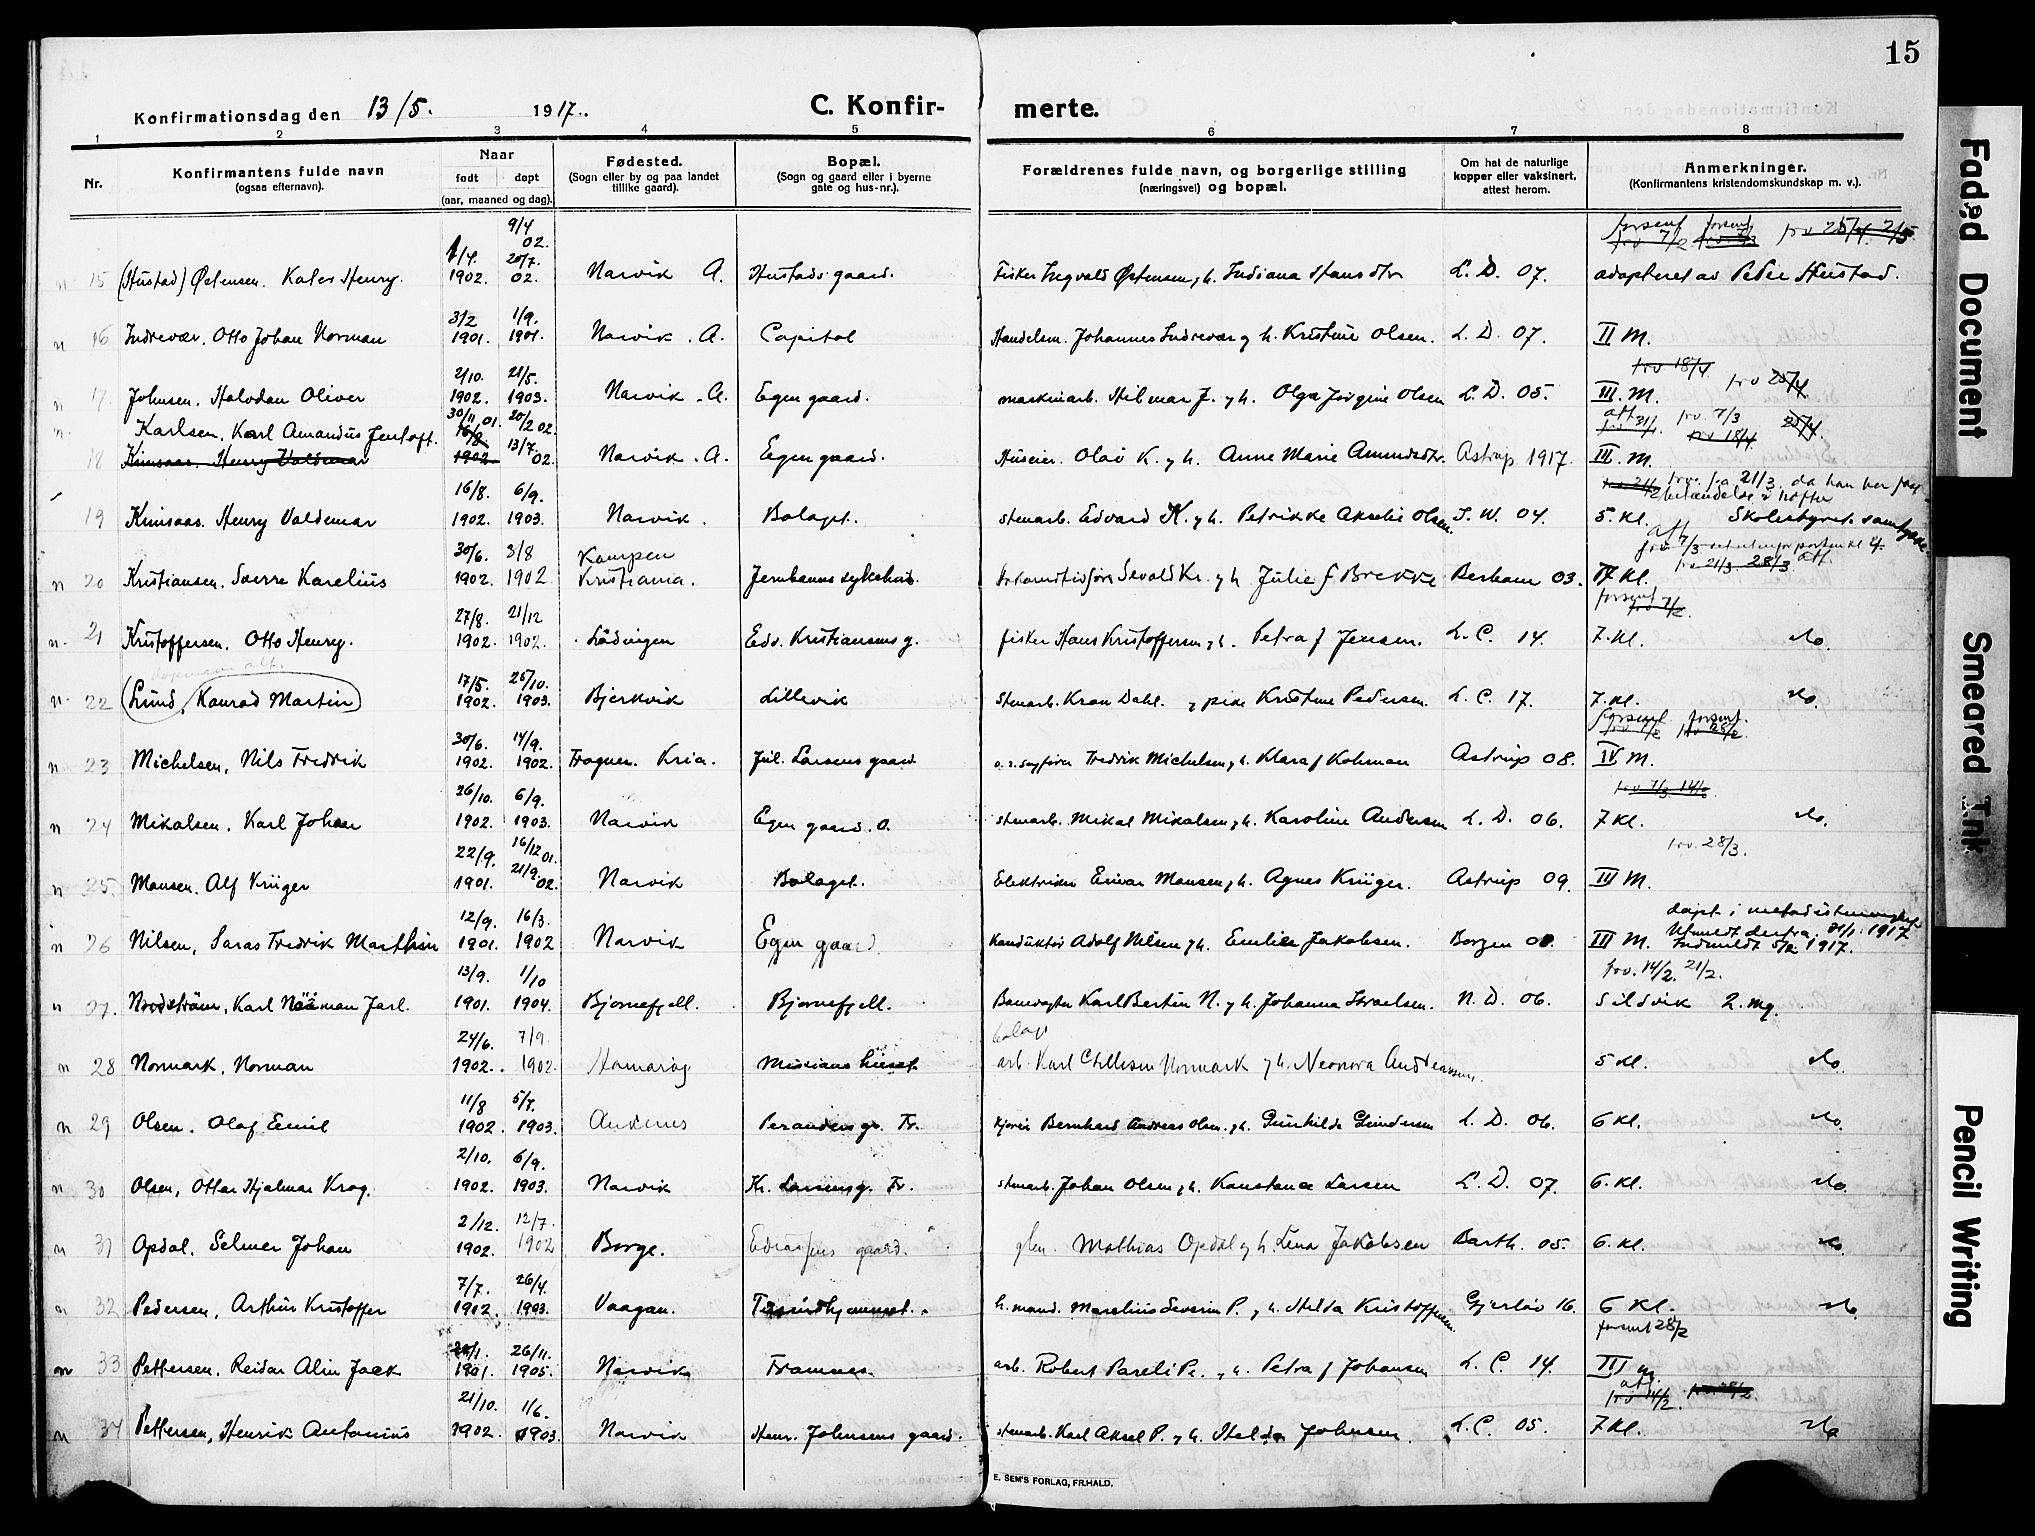 15
Konfirmationsdag den 13/5. 1917. C. Konfir- merte.
1 2 3 4 5 6 7 8
Nr.
Konfirmantens fulde navn
(ogsaa efternavn).
Naar
født døpt
(aar, maaned og dag).
Fødested.
(Sogn eller by og paa landet
tillike gaard).
Bopæl.
(Sogn og gaard eller i byerne
gate og hus-nr.).
Forældrenes fulde navn, og borgerlige stilling
(næringsvei) og bopæl.
Om hat de naturlige
kopper eller vaksinert,
attest herom.
Anmerkninger.
(Konfirmantens kristendomskundskap m. v.).
9/4 02. forsømt forsømt
1/4. 20/7.
15 (Hustad) Østensen. Kater Henry. 1902. 02. Narvik A. Hustads gaard. Fisker Ingvald Østensen, h. Indiana Hansdtr L. D. 07. adopteret av Peder Hustad.
3/2 1/9.
n 16 Indrevær. Otto Johan Norman 1901. 1901. Narvik. A. Capitol Handelsm. Johannes Indrevær og h. Kristine Olsen. L. D. 07. II M.
2/10. 21/5. frv 18/4 frv 25/4
n 17 Johnsen. Halvdan Oliver 1902. 1903. Narvik. A. Egen gaard. maskinarb. Hilmar J. og h. Olga Jørgine Olsen L. D. 05. III. M.
n. Karlsen, Karl Amandus Jentoft. 30/11 01. 20/2 02. frv. 7/3 frv 18/4 25/4
18 Kinsaas, Henry Valdemar 16/8 1902 13/7 02. Narvik. A. Egen gaard. Huseier. Olai K. og h. Anne Marie Amundsdtr. Astrup 1917. III. M.
16/8. 6/9. frv. fra 21/3. da han har faat betændelse i hofter
19 Kinsaas. Henry Valdemar 1902. 1903. Narvik. Bolaget. stenarb. Edvard K. og h. Petrikke Akselie Olsen. J. W. 04. 5. Kl. Skolestyrets samtykke
30/6. 3/8 Kampen
n 20 Kristiansen. Sverre Karelius 1902. 1902 Kristiania. Jernbanens sykehus. Sevald Kr. og h. Julie f Brekke Berham 03. IV Kl.
27/8. 21/12 forsømt frv 7/2
n. 21 Kristoffersen. Otto Henry. 1902. 1902. Lødingen Edv. Kristiansens g. fisker Hans Kristoffersen og h. Petra f Jensen. L. C. 14. 7. Kl. No.
17/5. 25/10.
n. 22 (Lund, Konrad Martin) 1902. 1903. Bjerkvik Lillevik Stenarb. Kran Dahl. og pike Kristine Pedersen. L. C. 17. 7. Kl. No.
30/6. 14/9. forsømt forsømt.
n 23 Michelsen, Nils Fredrik 1902. 1902. Frogner. Kria. Jul. Larsens gaard o.r.sagfører Fredrik Michelsen og h. Klara f Kohman Astrup 08. IV M.
26/10. 6/9. frv 7/3 14/3
n 24 Mikalsen. Karl Johan 1902. 1903. Narvik Egen gaard. O. stenarb. Mikal Mikalsen og h. Karoline Andersen L. D. 06. 7 Kl. No.
22/9. 16/12 01. frv. 28/3.
n 25 Monsen. Alf Krüger 1901. 21/9. 02. Narvik Bolaget. Elektriker Einar Monsen og h. Agnes Krüger. Astrup 09. III M.
12/9. 16/3. døpt i metodistmenighet
n 26 Nilsen, Saras Fredrik Marthin 1901. 1902 Narvik Egen gaard Konduktør Adolf Nilsen og h. Emilie Jakobsen. Borgen III M. Utmeldt derfra 31/1 1917 Indmeldt 5/2 1917.
13/9. 1/10 frv. 14/2. 21/2.
n 27. Nordstrøm, Karl Nääman Jarl. 1901. 1904. Bjørnefjell. Bjørnefjell. Banevogter Karl Bertin N. og h. Johanna Israelsen. N. D. 06. Sildvik 2. mg.
24/6. 7/9. bolag
n 28 Normark, Norman 1902. 1902. Hamarøy Misjons huset arb. Karl Normark og h. Neonora Andreassen. 5 Kl. No.
11/8 5/7.
n 29 Olsen. Olaf Emil 1902. 1903. Ankenes Peranders g. Fr. kjører Bernhard Andreas Olsen. og h. Gunhilda Gundersen L. D. 06. 6 Kl. No.
2/10. 6/9.
n 30 Olsen, Ottar Hjalmar Krog. 1902. 1903. Narvik K. Larsens g. Fr. stenarb. Johan Olsen og h. Konstance Larsen L. D. 07. 6. Kl. No.
2/12. 12/7.
n 31 Opdal. Selmer Johan 1902. 1902 Borge. gaard. Mathias Opdal og h. Lina Jakobsen Barth. 05. 6. Kl. No.
7/7. 26/4.
n 32 Pedersen, Arthur Kristoffer 1902. 1903. Vaagan. h. mand. Marelius Severin P. og h. Hilda Kristoffersen. Gjerløv 16. 6 Kl. No
26/11. forsømt 28/2
n 33 Pettersen, Reidar Alin Jack 1901. 1905. Narvik Framnes arb. Robert Pareli P. og h. Petra f Johansen L. C. 14. III M.
21/10. 1/6. frv 14/2.
n 34 Pettersen, Henrik Antonius 1902. 1903. Narvik Henr. Johnsens gaard. stenarb. Karl Aksel P. og h. Hilda Johnsen. L. C. 05. 7 Kl. No
E. SEM'S FORLAG, FR.HALD.
Faded Document
Smeared Ink
Pencil Writing